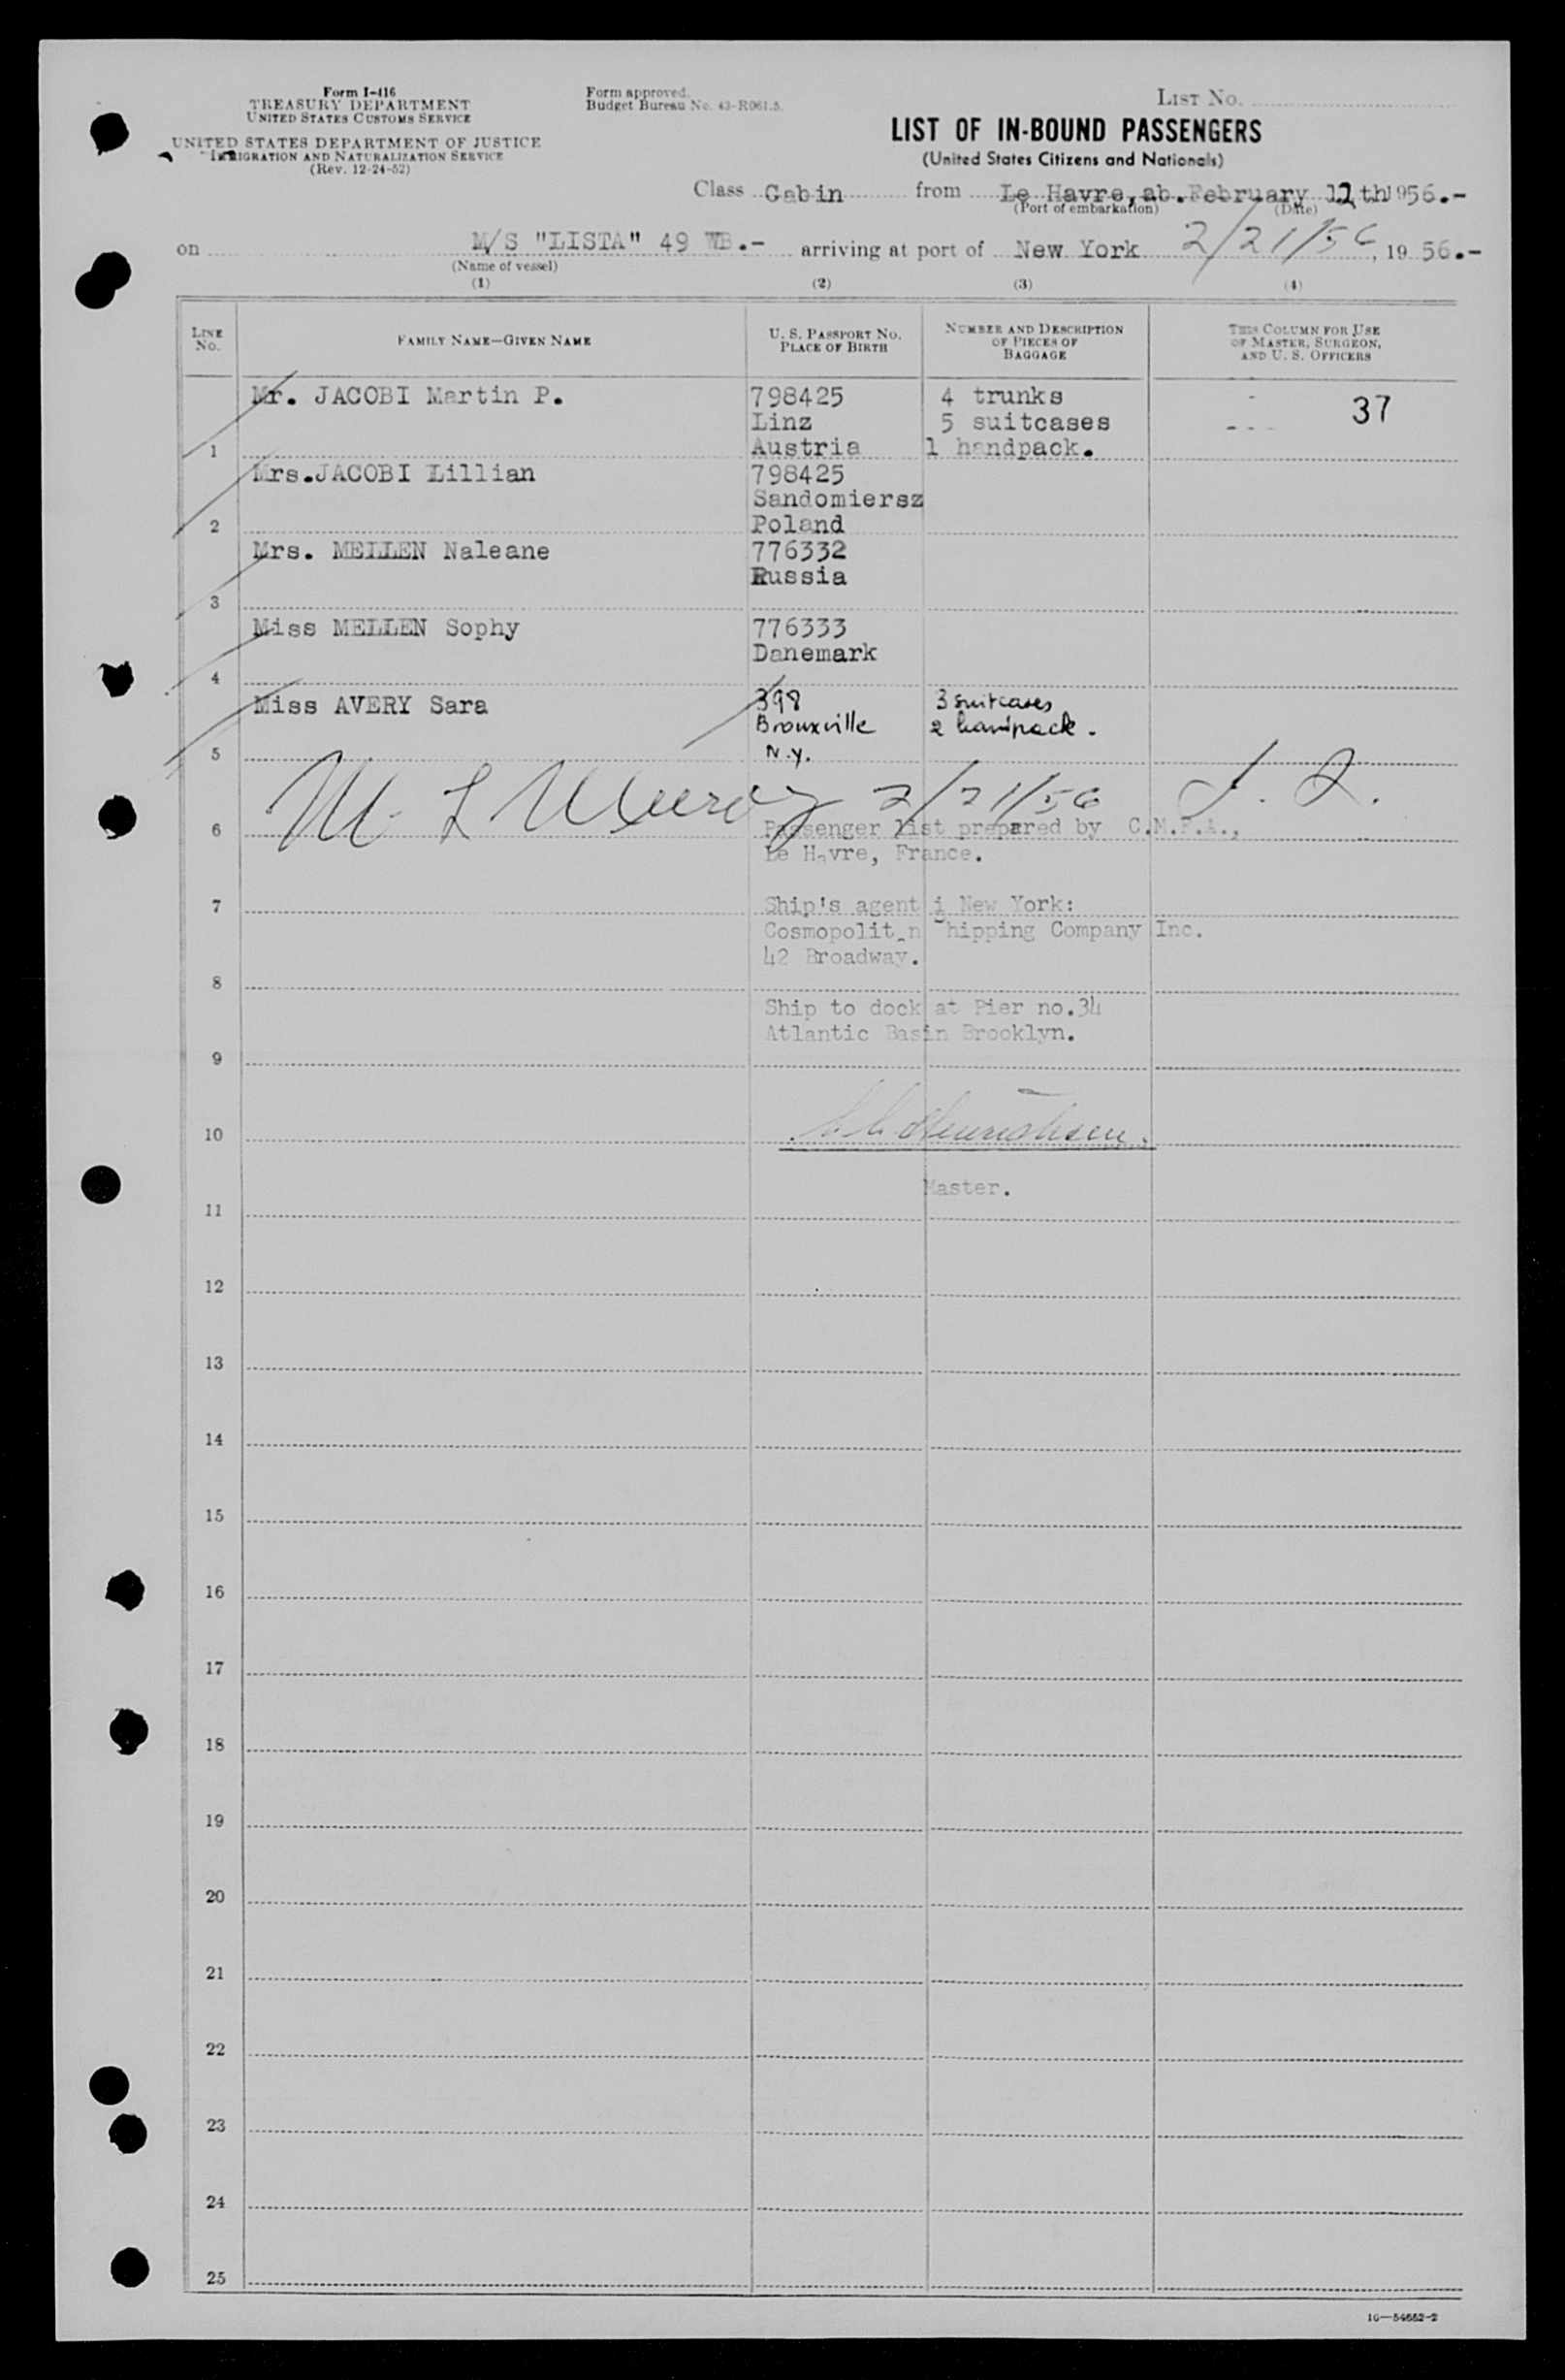 Form I-416
TREASURY DEPARTMENT
UNITED STATES CUSTOMS SERVICE
UNITED STATES DEPARTMENT OF JUSTICE
IMMIGRATION AND NATURALIZATION SERVICE
(Rev. 12-24-52)
Form approved.
Budget Bureau No. 43-R061.5.
LIST No.
LIST OF IN-BOUND PASSENGERS
(United States Citizens and Nationals)
Class Cabin from Le Havre, ab. February 12th 1956.-
(Port of embarkation) (Date)
on M/S "LISTA" 49 WB.- arriving at port of New York 2/21/56, 19 56.-
(Name of vessel)
(1) (2) (3) (4)
LINE No. FAMILY NAME—GIVEN NAME U. S. PASSPORT No. PLACE OF BIRTH NUMBER AND DESCRIPTION OF PIECES OF BAGGAGE THIS COLUMN FOR USE OF MASTER, SURGEON, AND U. S. OFFICERS
Mr. JACOBI Martin P. 798425 4 trunks 37
Linz 5 suitcases
1 Austria 1 handpack.
Mrs.JACOBI Lillian 798425
Sandomiersz
2 Poland
Mrs. MELLEN Naleane 776332
Russia
3
Miss MELLEN Sophy 776333
Danemark
4
Miss AVERY Sara 398 3 suitcases
Bronxville 2 handpack.
5 N.y.
M. L 2/21/56
6 Passenger list prepared by C.M.F.A.,
Le Havre, France.
7 Ship's agent i New York:
Cosmopolitan Shipping Company Inc.
42 Broadway.
8
Ship to dock at Pier no.34
Atlantic Basin Brooklyn.
9
10
Master.
11
12
13
14
15
16
17
18
19
20
21
22
23
24
25
16—54652-2